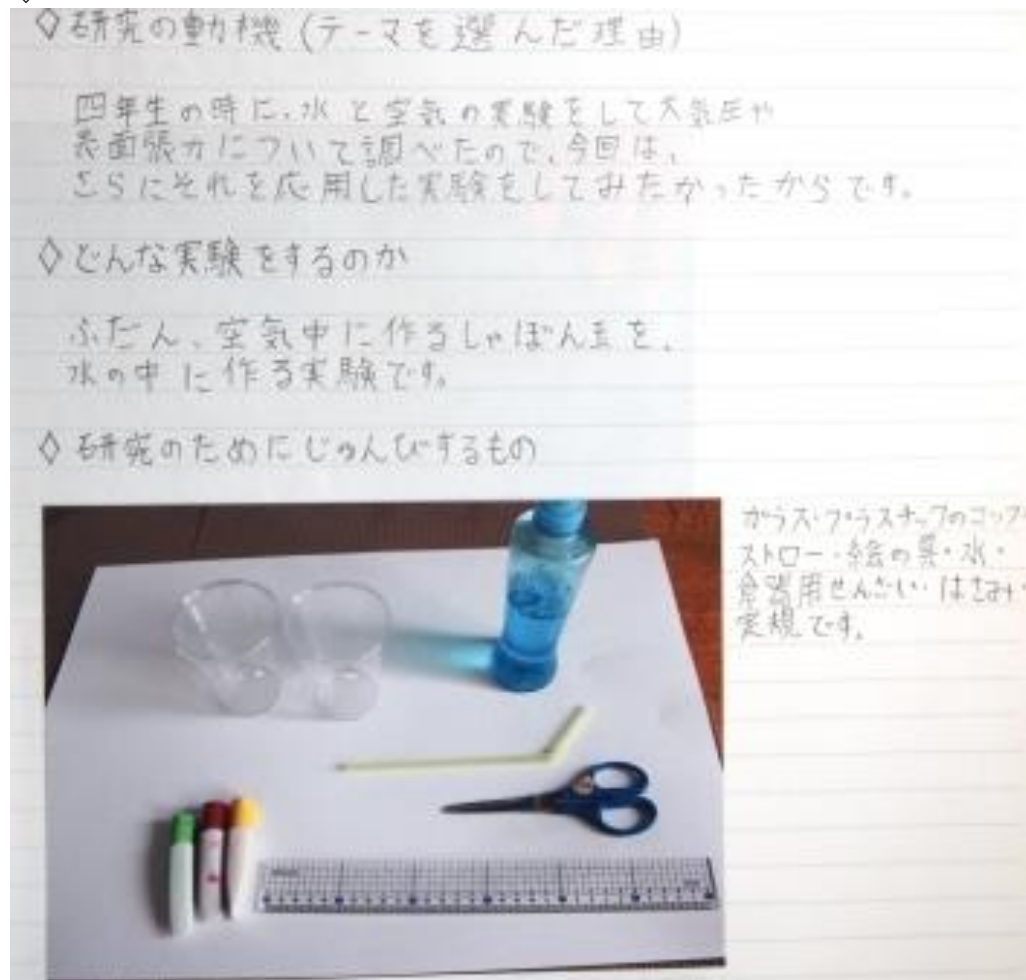 ◇研究の動機(テーマを選んだ理由)
四年生の時に、水と空気の実験をして大気圧や
表面張力について調べたので、今回は、
さらにそれを応用した実験をしてみたかったからです。
◇どんな実験をするのか
ふだん、空気中に作るしゃぼん玉を、
水の中に作る実験です。
◇研究のためにじゅんびするもの
ガラス・プラスチップのコップ・
ストロー・絵の具・水・
食器用せんざい・はさみ・
定規です。